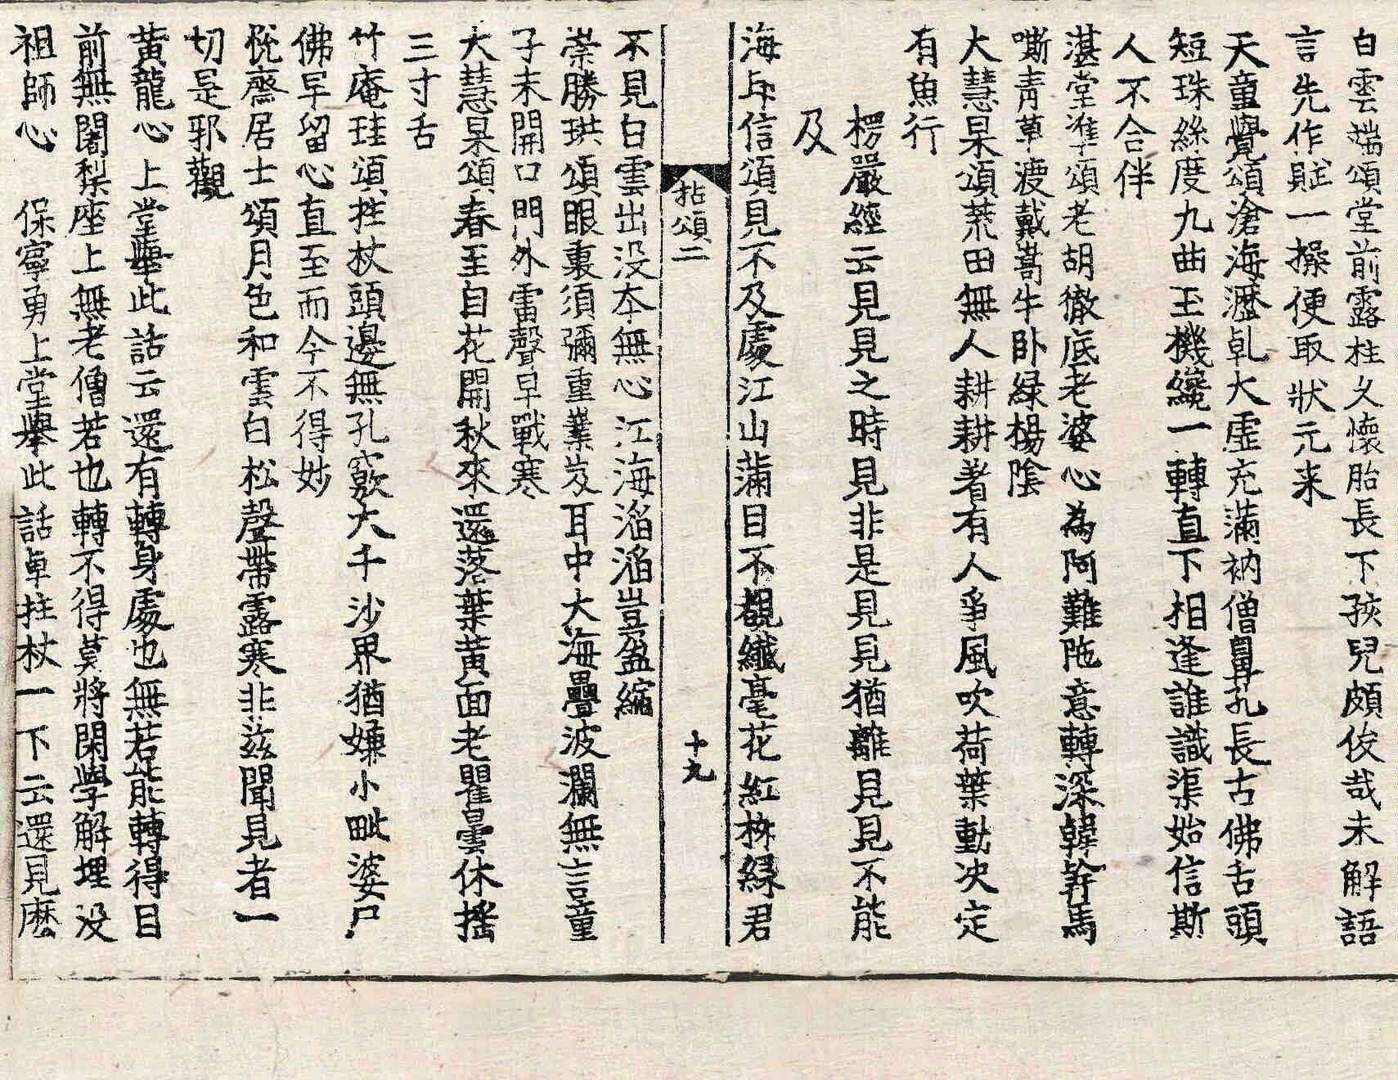 白雲端頌堂前露柱久懷胎長下孩兒頗俊哉未解語
言先作賦一操便取狀元来
天童覺頌滄海瀝乹大虛充滿衲僧鼻孔長古佛舌頭
短珠絲度九曲玉機纔一轉直下相逢誰識渠始信斯
人不合伴
湛堂準頌老胡徹底老婆心為阿難陁意轉深韓幹馬
嘶青草渡戴嵩牛卧綠楊隂
大慧杲頌荒田無人耕耕著有人爭風吹荷葉動决定
有魚行
楞嚴經云見見之時見非是見見猶離見見不能
及
海印信頌見不及處江山滿目不覩纖毫花紅柳綠君
拈頌二
十九
不見白雲出没夲無心江海滔滔豈盈縮
崇勝珙頌眼裏須彌重業岌耳中大海疊波瀾無言童
子未開口門外雷聲早戰寒
大慧杲頌春至自花開秋來還落葉黃面老瞿曇休搖
三寸舌
竹庵珪頌拄杖頭邊無孔竅大千沙界猶嫌小毗婆尸
佛早留心直至而今不得妙
悅齋居士頌月色和雲白松聲帶露寒非兹聞見者一
切是邪觀
黃龍心上堂舉此話云還有轉身處也無若能轉得目
前無闍梨座上無老僧若也轉不得莫將閑學解埋没
祖師心 保寧勇上堂舉此話卓拄杖一下云還見麽